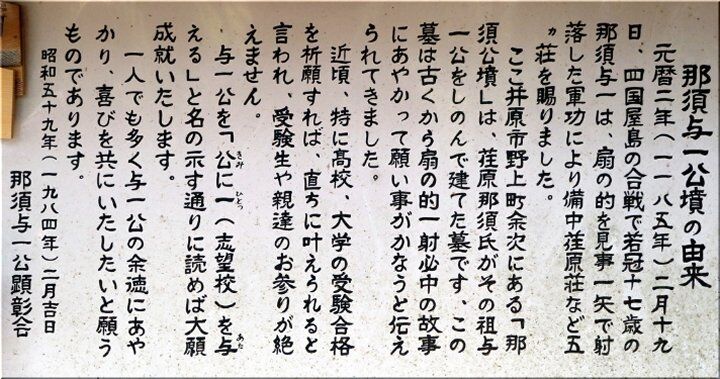 那須与一公墳の由来
元暦二年(一一八五年)二月十九
日、四国屋島の合戦で若冠十七歳の
那須与一は、扇の的を見事一矢で射
落した軍功により備中荏原荘など五
ヵ荘を賜りました。
ここ井原市野上町余次にある「那
須公墳」は、荏原那須氏がその祖与
一公をしのんで建てた墓です、この
墓は古くから扇の的一射必中の故事
にあやかって願い事がかなうと伝え
うれてきました。
近頃、特に高校、大学の受験合格
を祈願すれば、直ちに叶えられると
言われ、受験生や親達のお参りが絶
えません。
与一公を「公に一(志望校)を与
きみ ひとつ あた
える」と名の示す通りに読めば大願
成就いたします。
一人でも多く与一公の余徳にあや
かり、喜びを共にいたしたいと願う
ものであります。
昭和五十九年(一九八四年)二月吉日
那須与一公顕彰会